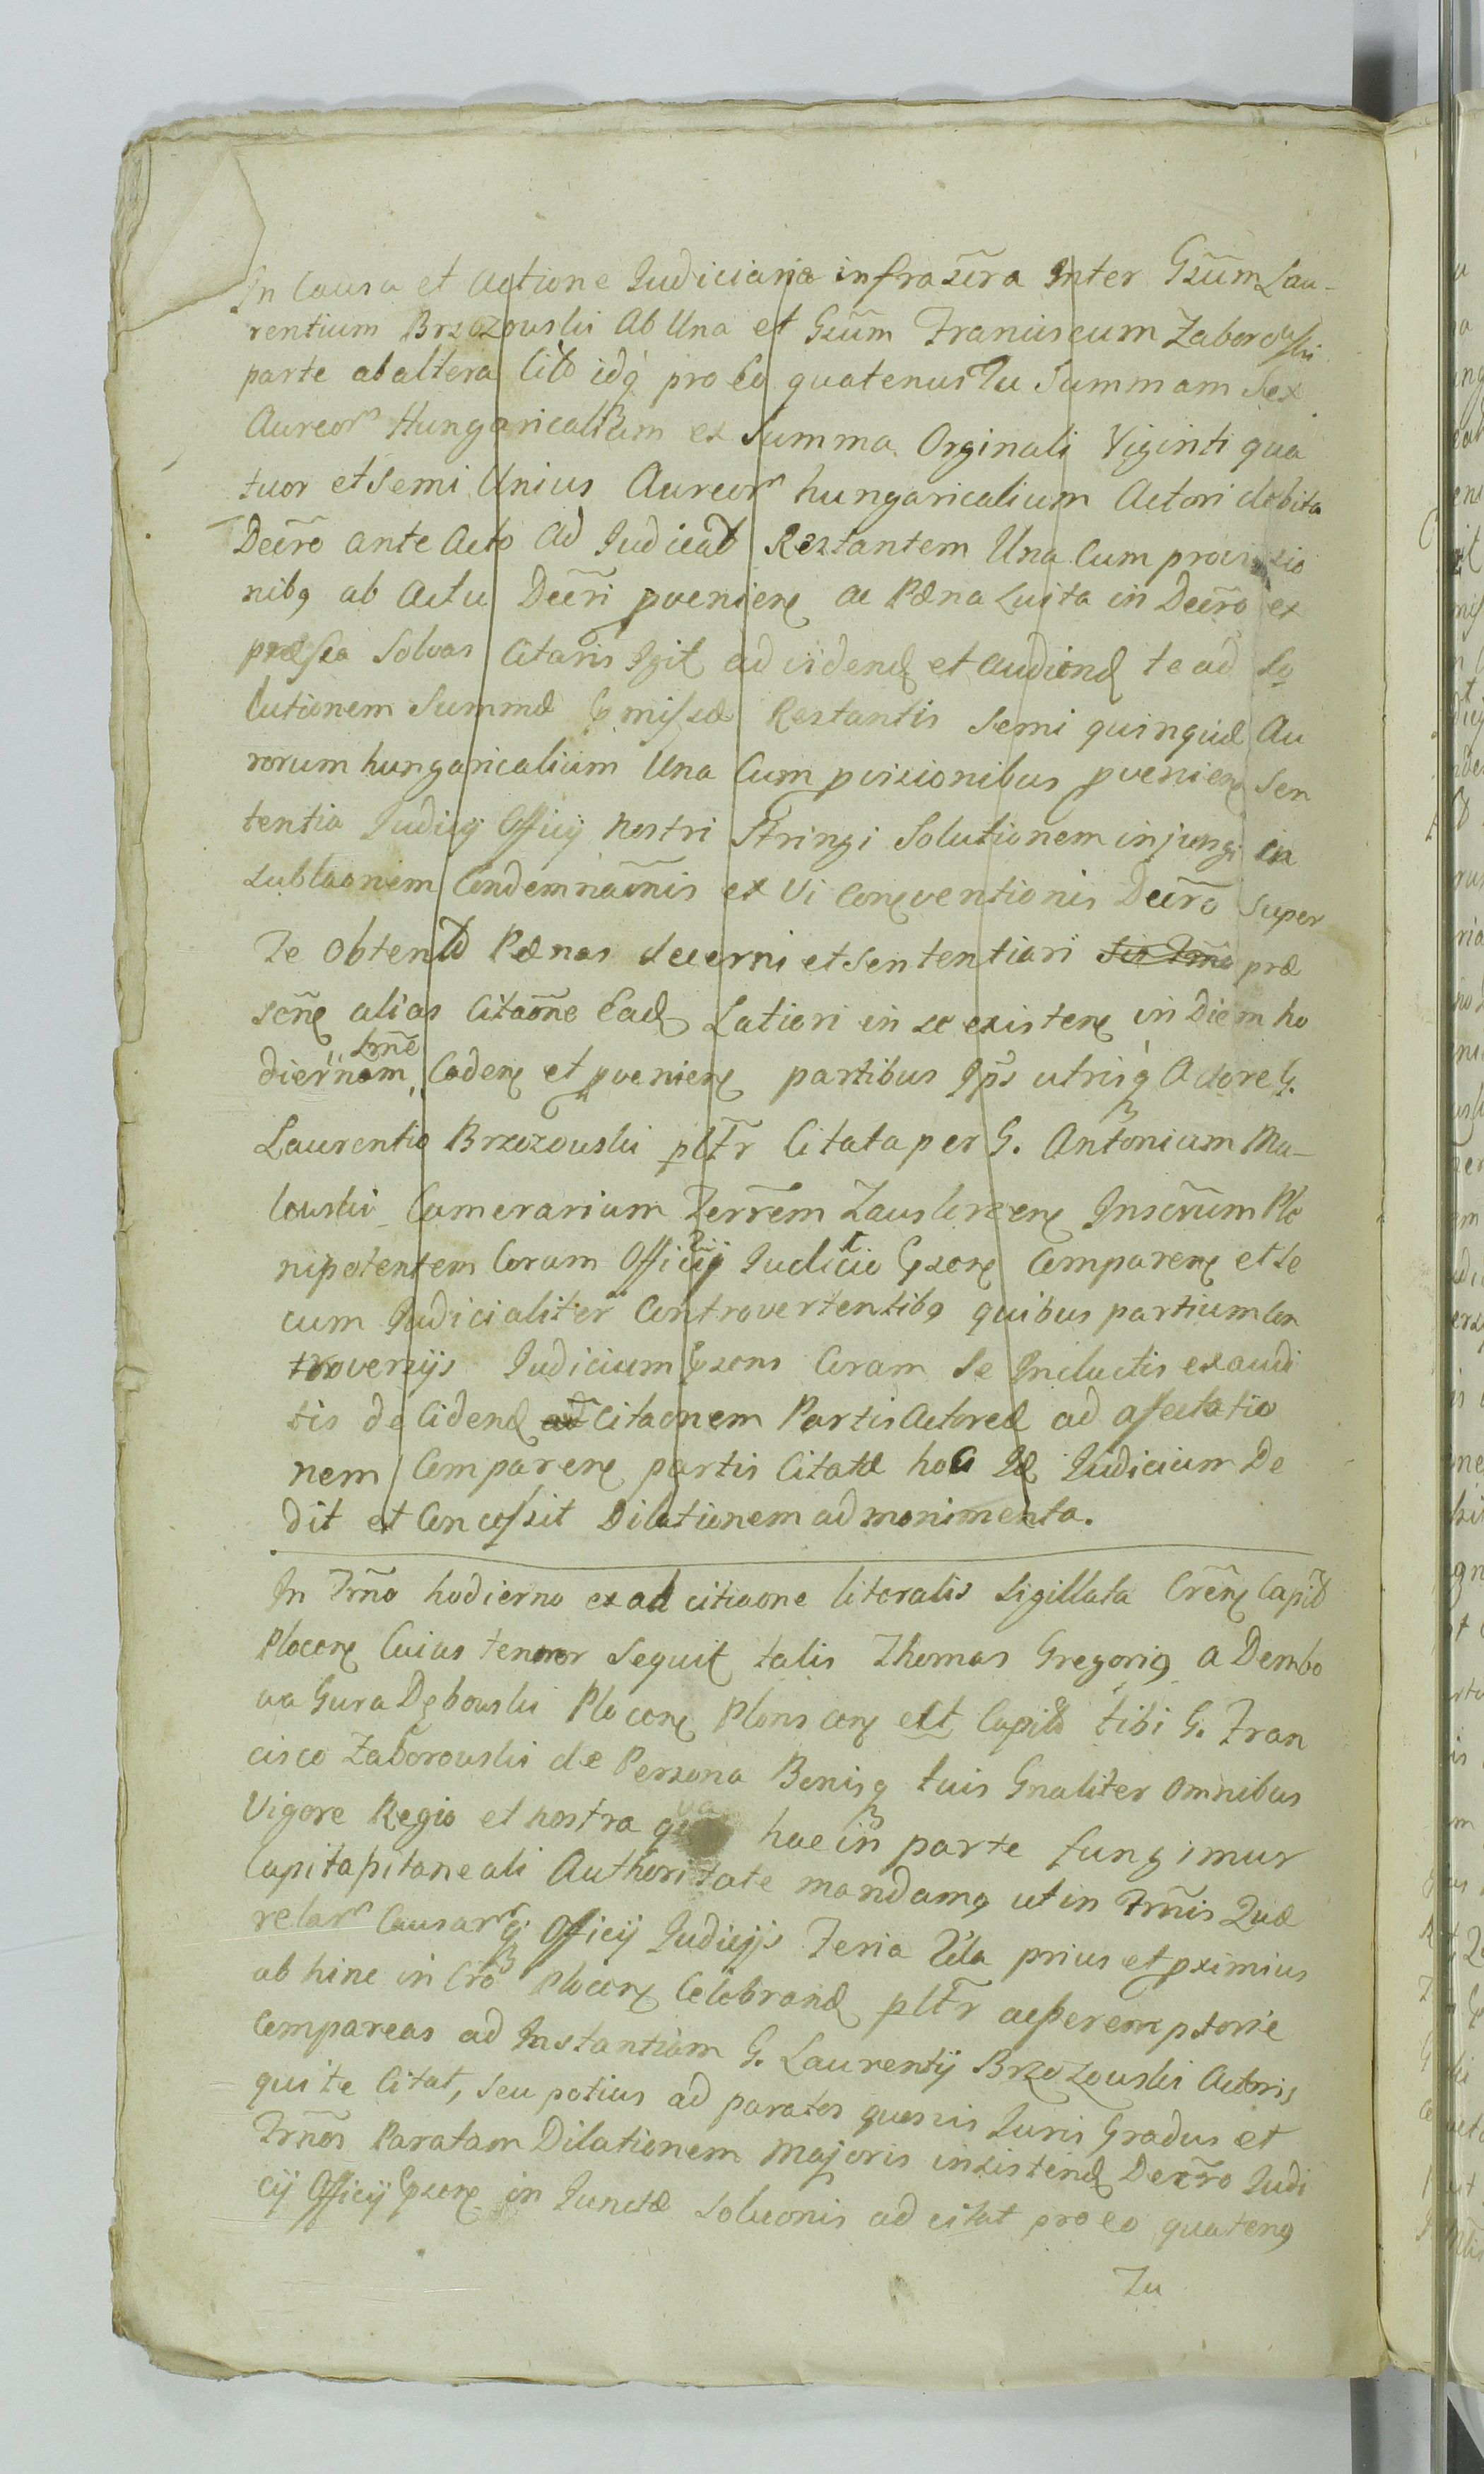 In Causa et Actione Judiciaria infrascra Inter Gsum Lau-
rentium Brzozowski Ab Una et Gsum Franciscum Zaborowski
parte ab altera Cito idq pro Eo quatenus Tu Summam Sex
Aureor Hungaricalium ex Summa Orginali Viginti qua
tuor et Semi Unius Aureor hungaricalium Actori debita
Decro ante Acto Ad Judicat Restantem Una Cum provizio
nibq ab Actu Decri pveniene ac Pæna Luita in Decro ex
præssa Solvas Citaris Igit ad vidend et audiend te ad So
lutionem Summæ Cpmissæ Restantis Semi quinquæ Au
rorum hungaricalium Una Cum pvizionibus pveniene Sen
tentia Judicij Officij Nostri Stringi Solutionem injungi in
sublaonem Condemnaonis ex Vi Conxventionis Decro Super
Te Obtento Pænas decerni et Sententiari præ
scne alias Citaone Ead Latiori in se existene in Diem ho
diernam Trne Cadene et pveniene partibus Ips utrisq Actore G.
Laurentio Brzozowski pltr Citata per G. Antonium Ma-
lowski Camerarium Terrem Zauskrzene Inscrum Ple
nipotentem Coram Officij Judicio Cpsene Comparene et Se
cum Judicialiter Controvertentibq quibus partium Con
troversijs Judicium Cpsens Coram Se Inductis exaudi
tis de Cidend Citaonem Partis Actoreæ ad afectatio
nem Comparene partis Citatæ hoc Id Judicium De
dit et Concessit Dilationem ad monimenta.
In Trno hodierno ex ad citiaone literalis Sigillata Crene Capit
Plocene Cuius tenor Sequit talis Thomas Gregoriq a Dembo
wa Gura Dębowski Plocene Plonscene ett Capito tibi G. Fran
cisco Zaborowski de Persona Bonisq tuis Gnaliter omnibus
Vigore Regio et nostra qua hac in parte fungimur
Capitapitaneali Authoritate mandamq ut in Trnis Quæ
relar Causarq Officij Judicijs Feria IIda prius et pximius
ab hinc in Cro Plocene Celebrand pltr ac peremptorie
Compareas ad Instantiam G. Laurentij Brzozowski Actoris
qui te Citat, seu potius ad paratos quosvis Juris Gradus et
Trnos Paratam Dilationem Majoris insistend Decro Judi
cij Officij Cpsene in Junctæ Soluonis ad citat pro eo quatenq
Tu